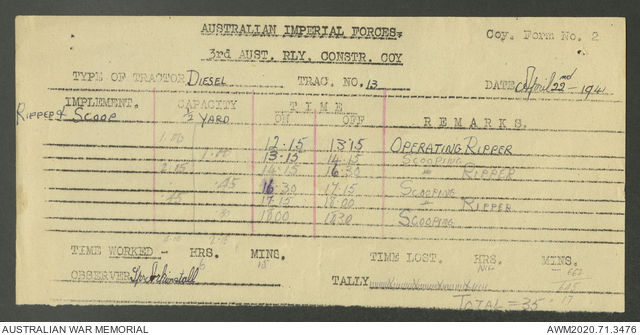 AUSTRALIAN IMPERIAL FORCES.
Coy. Form No. 2
3rd AUST. RLY. CONSTR. COY
TYPE OF TRACTOR DIESEL TRAC. NO. 13 DATE April 22nd - 1941
IMPLEMENT. CAPACITY TIME
Ripper & Scoop ½ YARD ON OFF REMARKS.
1.00 12.15 13.15 OPERATING RIPPER
1.00 13.15 14.15 SCOOPING
2.15 14.15 16.30 " RIPPER
.45 16.30 17.15 SCOOPING
.45 17.15 18.00 " RIPPER
18.00 18.30 SCOOPING
TIME WORKED - HRS. MINS. TIME LOST. HRS. MINS.
6 15 NIL
OBSERVER Spr TALLY
TOTAL = 35
AUSTRALIAN WAR MEMORIAL AWM2020.71.3476